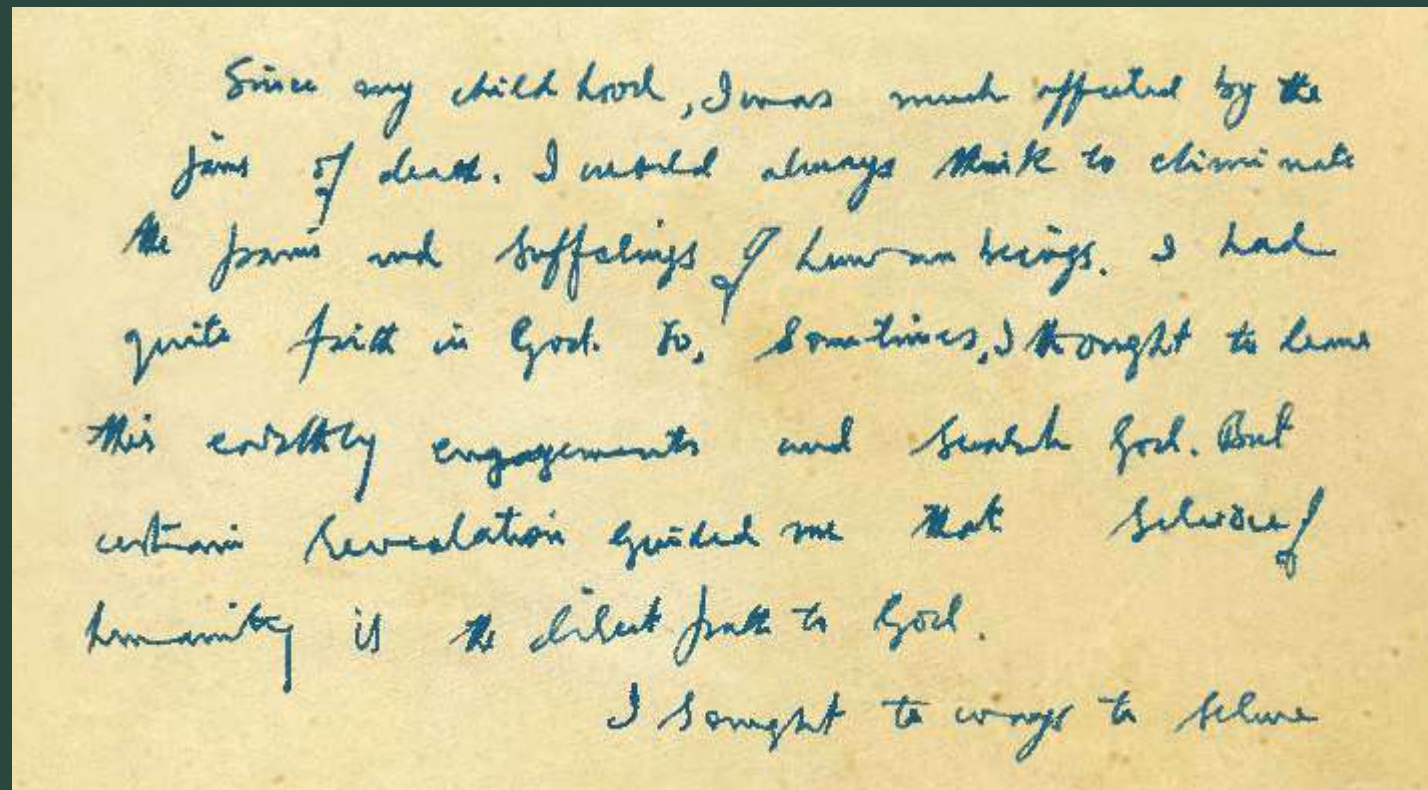 Since my child hood, I was much affected by the
jaws of death. I would always think to eliminate
the pains and sufferings of human beings. I had
quite faith in God. So, Sometimes, I thought to leave
this earthly engagements and search God. But
certain revealation guided me that service of
humanity is the direct path to God.
I sought to ways to serve